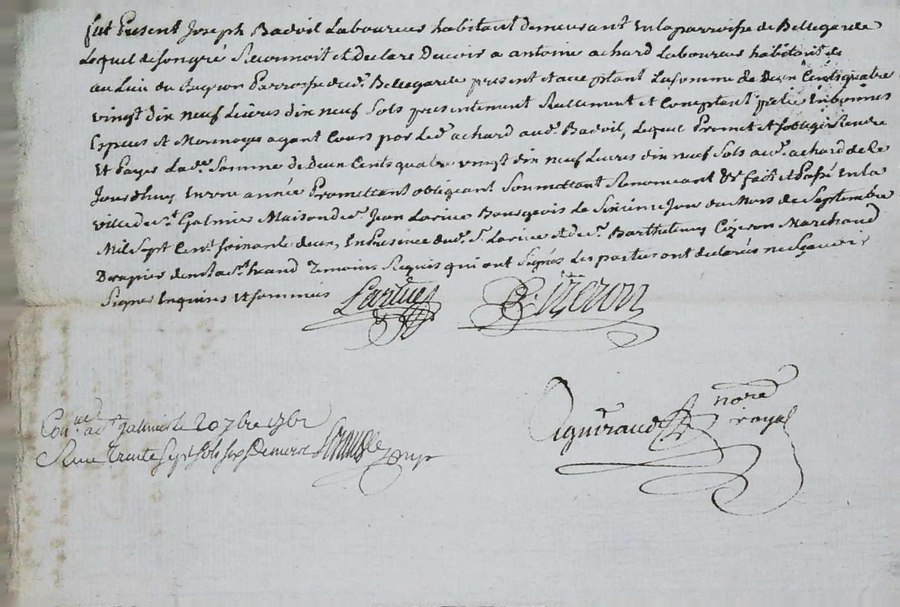 fut Present Joseph Badoil Laboureur habitant demeurant En la parroisse de Bellegarde
Lequel de son gré Reconnoit et Declare Devoir a antoine achard Laboureur habitant de
au Lieu du Parrosse dud.t Bellegarde present et acceptant La somme de Deux Cents quatre
vingt dix neuf Livres dix neuf Sols presentement Reellement et Comptant En bonnes
Especes et Monnoyes ayant Cours par Led.t achard aud.t Badoil, Lequel Promet et soblige Rendre
Et Payer Lad.e Somme de Deux Cents quatre vingt dix neuf Livres dix neuf Sols aud.t achard de ce
Jourdhuy En une année Promettant obligeant Soumettant Renonceant &c fait et Passé En la
ville de S.t Galmier Maison de S.r Jean Larüe Bourgeois Le Sixième Jour du Mois de Septembre
Mil Sept Cent soixante deux, En Presence dud.t S.r Larüe et de S.r Barthelemy Cizeron Marchand
Drapier dem.t Temoins Requis qui ont Signés Les parties ont declarés ne Sçavoir
Signer Enquises et sommées Larüe B. Cizeron
aiguiraud nore royal
Con.lé a S.t galmier le 20 7bre 1762
Reçu Trente Sept Sols Six Deniers